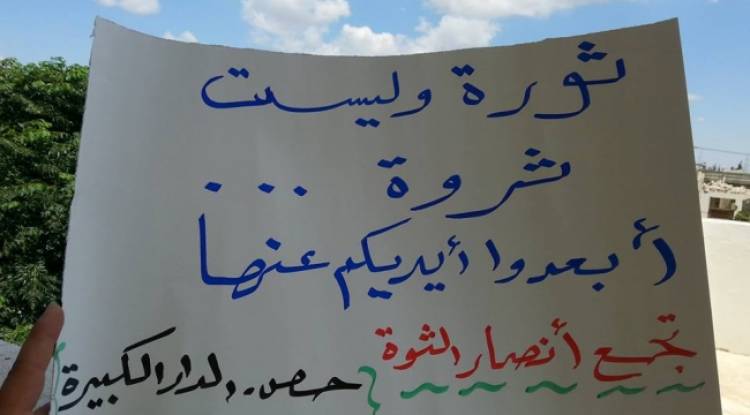 ثورة وليست
ثروة ...
أبعدوا أيديكم عنها
تجمع أنصار الثوة
حمص.. الدار الكبيرة